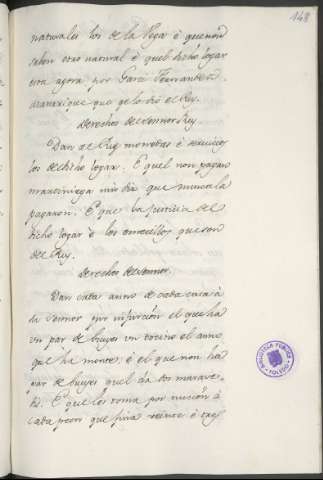 148
naturales los de la Vega é que non
saben otro natural é quel dicho logar
era agora por Garci Ferrandez
que gelo dió el Rey.
Derechos del Sennor Rey.
Dan al Rey monedas é servicios
los deldicho logar. E quel non pagan
martiniega nin dia que nunca la
pagaron. E que la justicia del
dicho logar é los omecillos que son
del Rey.
Derechos del sennor.
Dan cada anno de cada casa á
su sennor por infurción el que ha
un par de bueyes un tocino el anno
que há monte; é el que non ha
par de bueyes quel da dos marave-
dis. E que les toma por nuncion á
cada pechero que fina é
BIBLIOTECA PUBLICA
TOLEDO